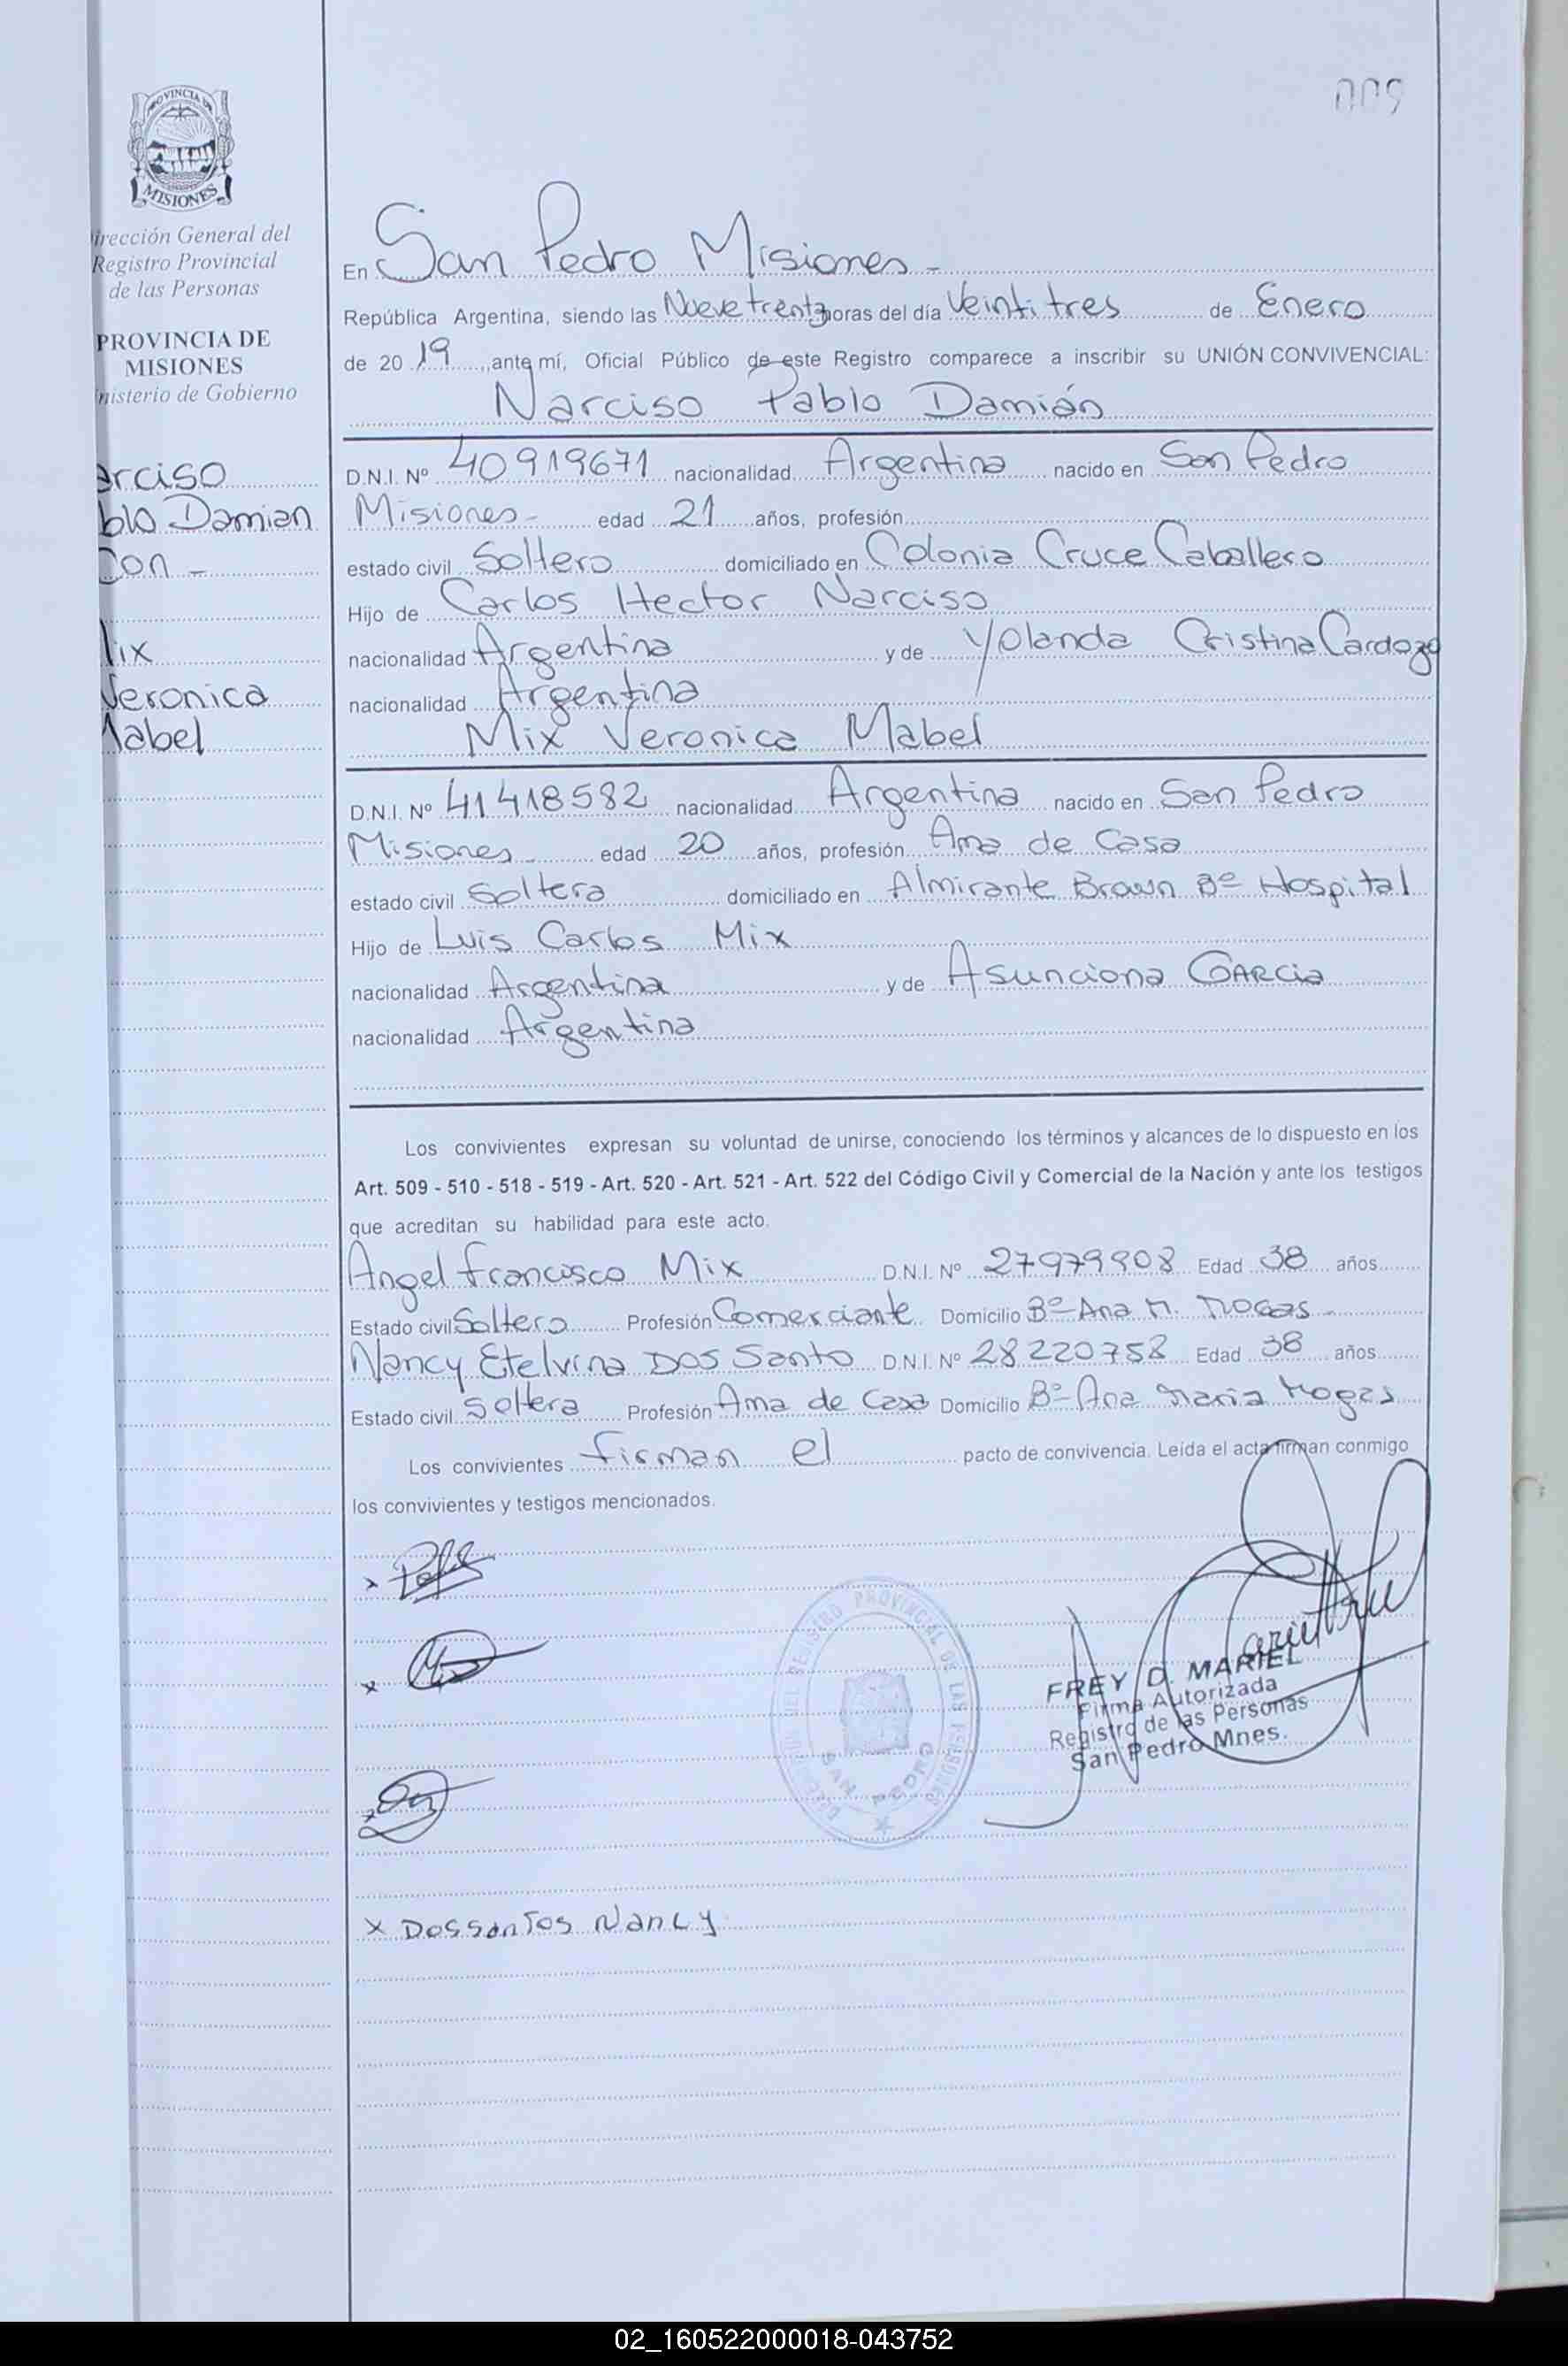 009
PROVINCIA DE
MISIONES
irección General del
Registro Provincial
de las Personas
PROVINCIA DE
MISIONES
nisterio de Gobierno
arciso
blo Damian
Con -
Mix
Veronica
Mabel
En San Pedro Misiones -
República Argentina, siendo las Nueve trenta horas del día Veintitres de Enero
de 20 19 ,, ante mí, Oficial Público de este Registro comparece a inscribir su UNIÓN CONVIVENCIAL:
Narciso Pablo Damián
D.N.I. Nº 40919671 nacionalidad Argentina nacido en San Pedro
Misiones - edad 21 años, profesión
estado civil Soltero domiciliado en Colonia Cruce Caballero
Hijo de Carlos Hector Narciso
nacionalidad Argentina y de Yolanda Cristina Cardozo
nacionalidad Argentina
Mix Veronica Mabel
D.N.I. Nº 41418582 nacionalidad Argentina nacido en San Pedro
Misiones - edad 20 años, profesión Ama de Casa
estado civil Soltera domiciliado en Almirante Brown Bº Hospital
Hijo de Luis Carlos Mix
nacionalidad Argentina y de Asunciona GARCia
nacionalidad Argentina
Los convivientes expresan su voluntad de unirse, conociendo los términos y alcances de lo dispuesto en los
Art. 509 - 510 - 518 - 519 - Art. 520 - Art. 521 - Art. 522 del Código Civil y Comercial de la Nación y ante los testigos
que acreditan su habilidad para este acto.
Angel Francisco Mix D.N.I. Nº 27979908 Edad 38 años
Estado civil Soltero Profesión Comerciante Domicilio Bº Ana M. MOGAS -
Nancy Etelvina DOS Santo D.N.I. Nº 28220758 Edad 38 años
Estado civil Soltera Profesión Ama de Casa Domicilio Bº Ana Maria Mogas
Los convivientes firman el pacto de convivencia. Leída el acta firman conmigo
los convivientes y testigos mencionados.
DIRECCION DEL REGISTRO PROVINCIAL DE LAS PERSONAS
SAN PEDRO
FREY D. MARIEL
Firma Autorizada
Registro de las Personas
San Pedro Mnes.
x Dossantos Nancy
02_160522000018-043752